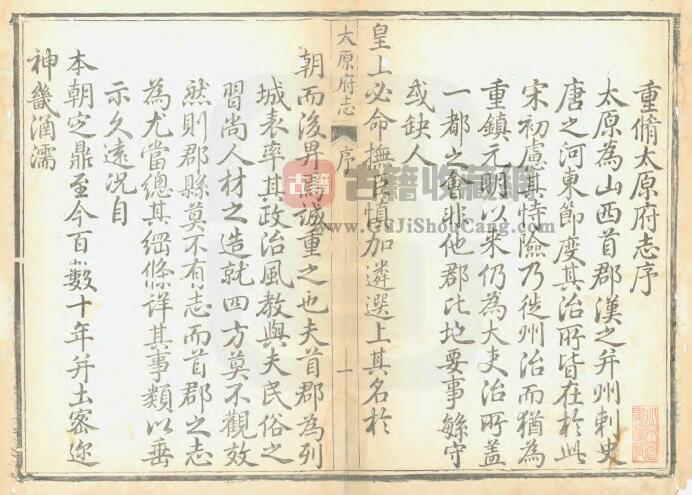 重脩太原府志序
太原為山西首郡漢之并州刺史
唐之河東節度其治所皆在於此
宋初慮其恃險乃徙州治而猶為
重鎮元明以來仍為大吏治所蓋
一都之會非他郡比地要事繇守
或缺人
皇上必命撫臣慎加遴選上其名於
大原府志
序
一
朝而後畀焉誠重之也夫首郡為列
城表率其政治風教與夫民俗之
習尚人材之造就四方莫不觀效
然則郡縣莫不有志而首郡之志
為尤當總其綱條詳其事類以垂
示久遠况自
本朝定鼎至今百數十年并土密邇
神畿涵濡
古籍 古籍收藏網
www.GUJiShouCang.com